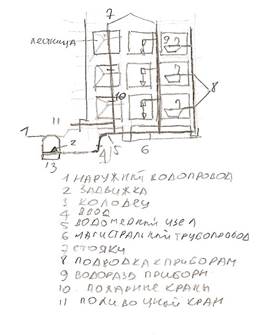 7
лестница
9
10
8
11
1
2
13
4
5
6
1 НАРУЖНЫЙ ВОДОПРОВОД
2 ЗАДВИЖКА
3 КОЛОДЕЦ
4 ВВОД
5 ВОДОМЕРНЫЙ УЗЕЛ
6 МАГИСТРАЛЬНЫЙ ТРУБОПРОВОД
7 СТОЯКИ
8 ПОДВОДКА К ПРИБОРАМ
9 ВОДОРАЗБ ПРИБОРЫ
10 ПОЖАРНЫЕ КРАНЫ
11 ПОЛИВОЧНЫЙ КРАН